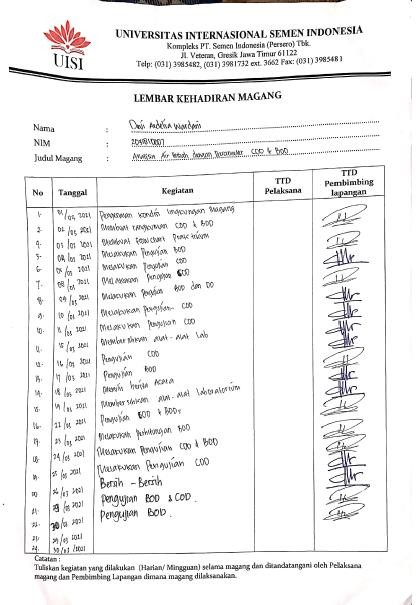 UISI
UNIVERSITAS INTERNASIONAL SEMEN INDONESIA
Kompleks PT. Semen Indonesia (Persero) Tbk.
Jl. Veteran, Gresik Jawa Timur 61122
Telp: (031) 3985482, (031) 3981732 ext. 3662 Fax: (031) 3985481
LEMBAR KEHADIRAN MAGANG
Nama : Devi Wardani
NIM :
Judul Magang : Analisa Air limbah dengan Parameter COD & BOD
No Tanggal Kegiatan TTD Pelaksana TTD Pembimbing lapangan
1. 01/03 2021 Pengenalan kondisi lingkungan Magang
2. 02/03 2021 Membuat rangkuman COD & BOD
03/03 2021 Membuat Flowchart Praktikum
04/03 2021 Melakukan Pengujian BOD
05/03 2021 Melakukan Pengujian COD
08/03 2021 Melakukan Pengujian COD
09/03 2021 Melakukan Pengujian BOD dan DO
10/03 2021 Melakukan Pengujian COD
11/03 2021 Melakukan Pengujian COD
15/03 2021 Membersihkan alat-alat lab
16/03 2021 Pengujian COD
17/03 2021 Pengujian BOD
18/03 2021 Berita Acara
19/03 2021 Membersihkan alat-alat laboratorium
22/03 2021 Pengujian COD & BOD5
23/03 2021 Melakukan perhitungan BOD
24/03 2021 Melakukan Pengujian COD & BOD
25/03 2021 Melakukan Pengujian COD
26/03 2021 Bersih - Bersih
Pengujian BOD & COD.
30/03 2021 Pengujian BOD.
Catatan :
Tuliskan kegiatan yang dilakukan (Harian/ Mingguan) selama magang dan ditandatangani oleh Pelaksana
magang dan Pembimbing Lapangan dimana magang dilaksanakan.